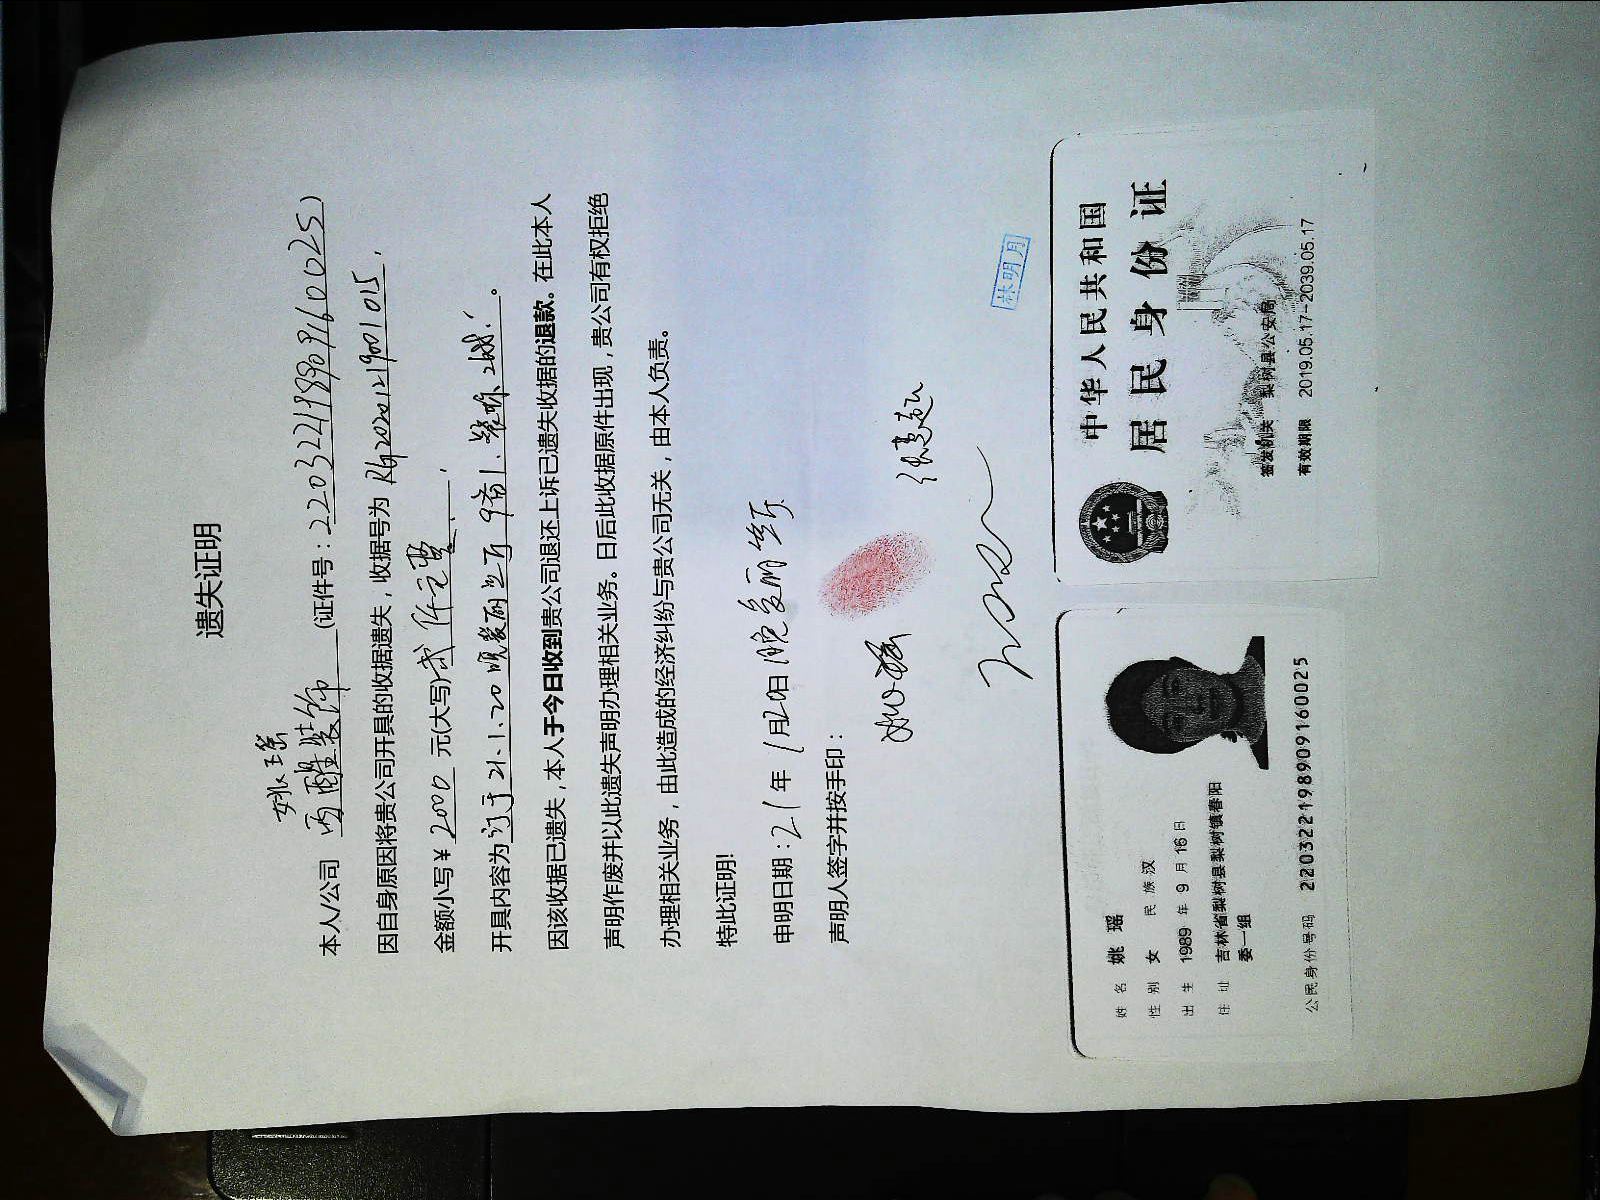 遗失证明
姚瑶
本人/公司 丙醒装饰 (证件号：220322198909160025)
因自身原因将贵公司开具的收据遗失，收据号为 Rg20201219001015，
金额小写￥2000 元(大写)贰仟元整，
开具内容为订于21.1.20晚 厅
因该收据已遗失，本人于今日收到贵公司退还上诉已遗失收据的退款。在此本人
声明作废并以此遗失声明办理相关业务。日后此收据原件出现，贵公司有权拒绝
办理相关业务，由此造成的经济纠纷与贵公司无关，由本人负责。
特此证明!
申明日期：21年1月20日晚宴 厅
声明人签字并按手印：
姚瑶
林明月
姓名 姚瑶
性别 女 民族 汉
出生 1989 年 9 月 16 日
住址 吉林省梨树县梨树镇春阳
委一组
公民身份号码 220322198909160025
中华人民共和国
居民身份证
签发机关 梨树县公安局
有效期限 2019.05.17-2039.05.17